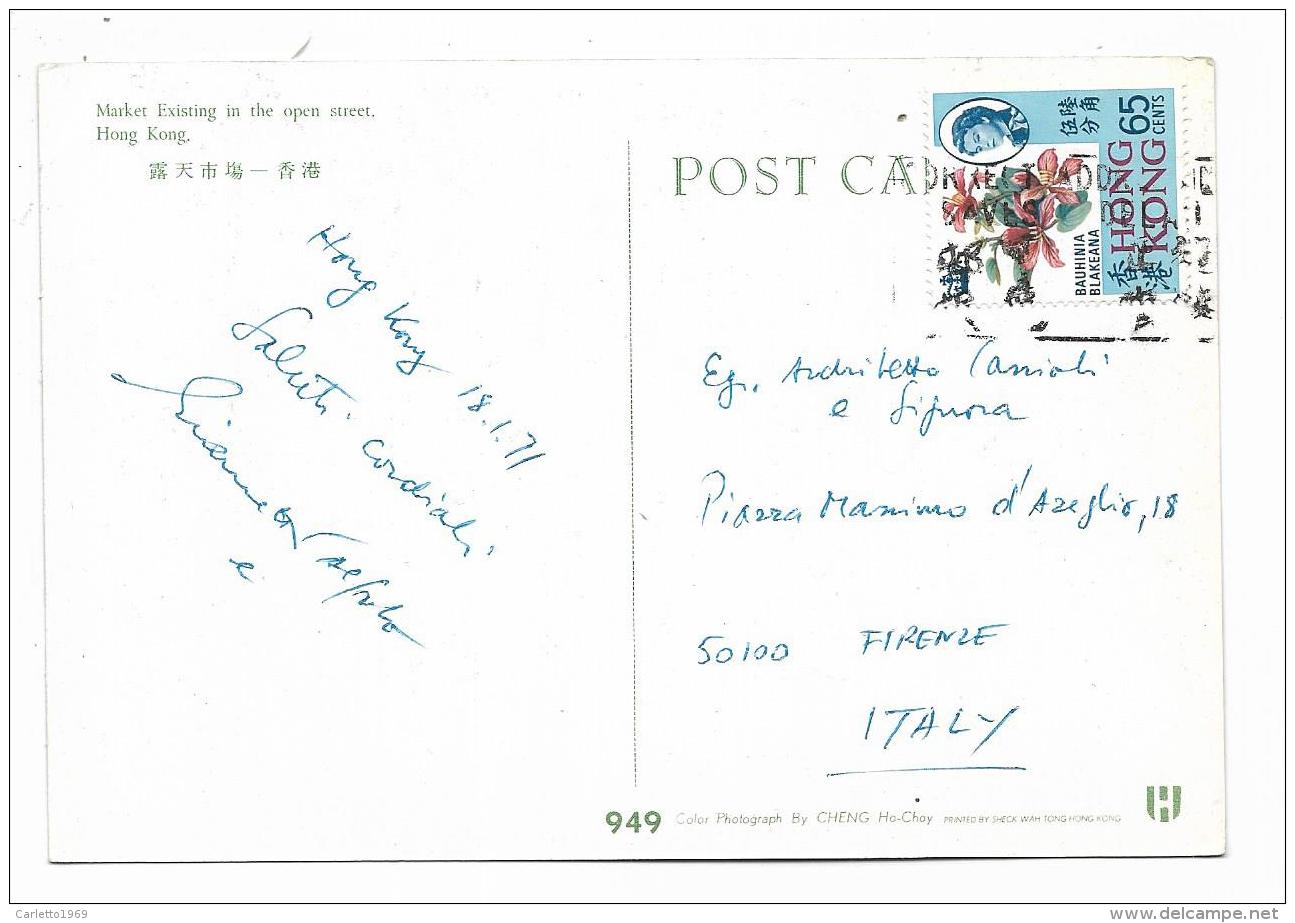 Market Existing in the open street.
Hong Kong.
露天市場—香港
Hong Kong 18.1.71
Saluti cordiali
e
POST CA
伍陸
分角
65
CENTS
HONG
KONG
香港
BAUHINIA
BLAKEANA
Egr.
e Signora
Piazza Massimo d'Azeglio, 18
50100 FIRENZE
ITALY
949 Color Photograph By CHENG Ho-Choy PRINTED BY SHECK WAH TONG HONG KONG
Carletto1969
delcampe.net